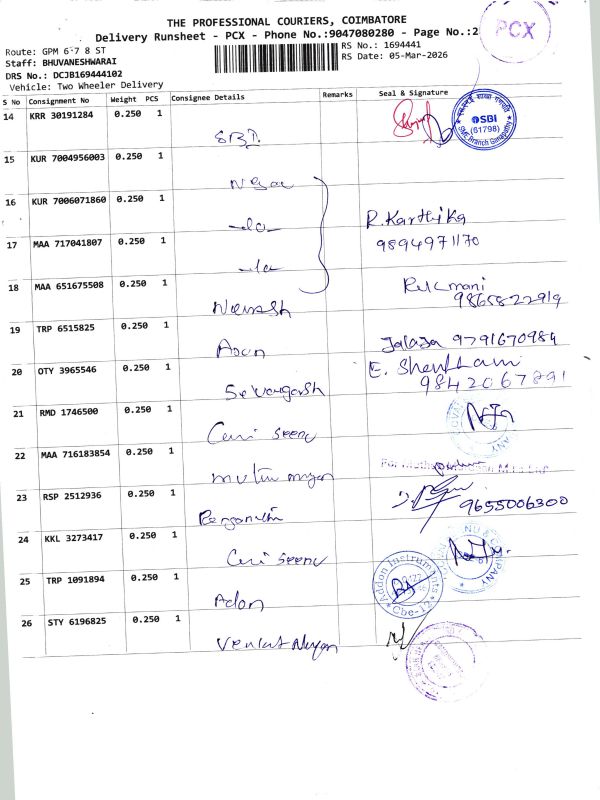 THE PROFESSIONAL COURIERS, COIMBATORE
Delivery Runsheet - PCX - Phone No.:9047080280 - Page No.:2
PCX
Route: GPM 6 7 8 ST
RS No.: 1694441
Staff: BHUVANESHWARAI
RS Date: 05-Mar-2026
DRS No.: DCJB169444102
Vehicle: Two Wheeler Delivery
S No Consignment No Weight PCS Consignee Details Remarks Seal & Signature
14 KRR 30191284 0.250 1
SBI.
SBI
(61798)
SME Branch Ganapathy
15 KUR 7004956003 0.250 1
16 KUR 7006071860 0.250 1
R.Karthika
9894971170
17 MAA 717041807 0.250 1
18 MAA 651675508 0.250 1
Naresh
Rukmani
9865822919
19 TRP 6515825 0.250 1
Jalaja 9791670984
20 OTY 3965546 0.250 1
E. Shenbagam
9842067891
21 RMD 1746500 0.250 1
Ceni seenu
22 MAA 716183854 0.250 1
23 RSP 2512936 0.250 1
9655006300
24 KKL 3273417 0.250 1
Ceni seenu
25 TRP 1091894 0.250 1
Adon
Addon Instruments
Cbe-12
26 STY 6196825 0.250 1